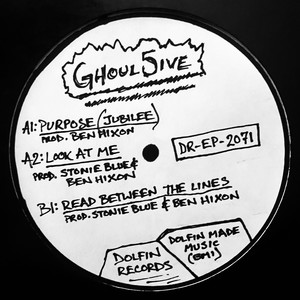 GHOUL 5IVE
A1: PURPOSE (JUBILEE)
PROD. BEN HIXON
A2: LOOK AT ME
PROD. STONIE BLUE &
BEN HIXON
DR-EP-2071
B1: READ BETWEEN THE LINES
PROD. STONIE BLUE & BEN HIXON
DOLFIN
RECORDS
DOLFIN MADE
MUSIC
(BMI)